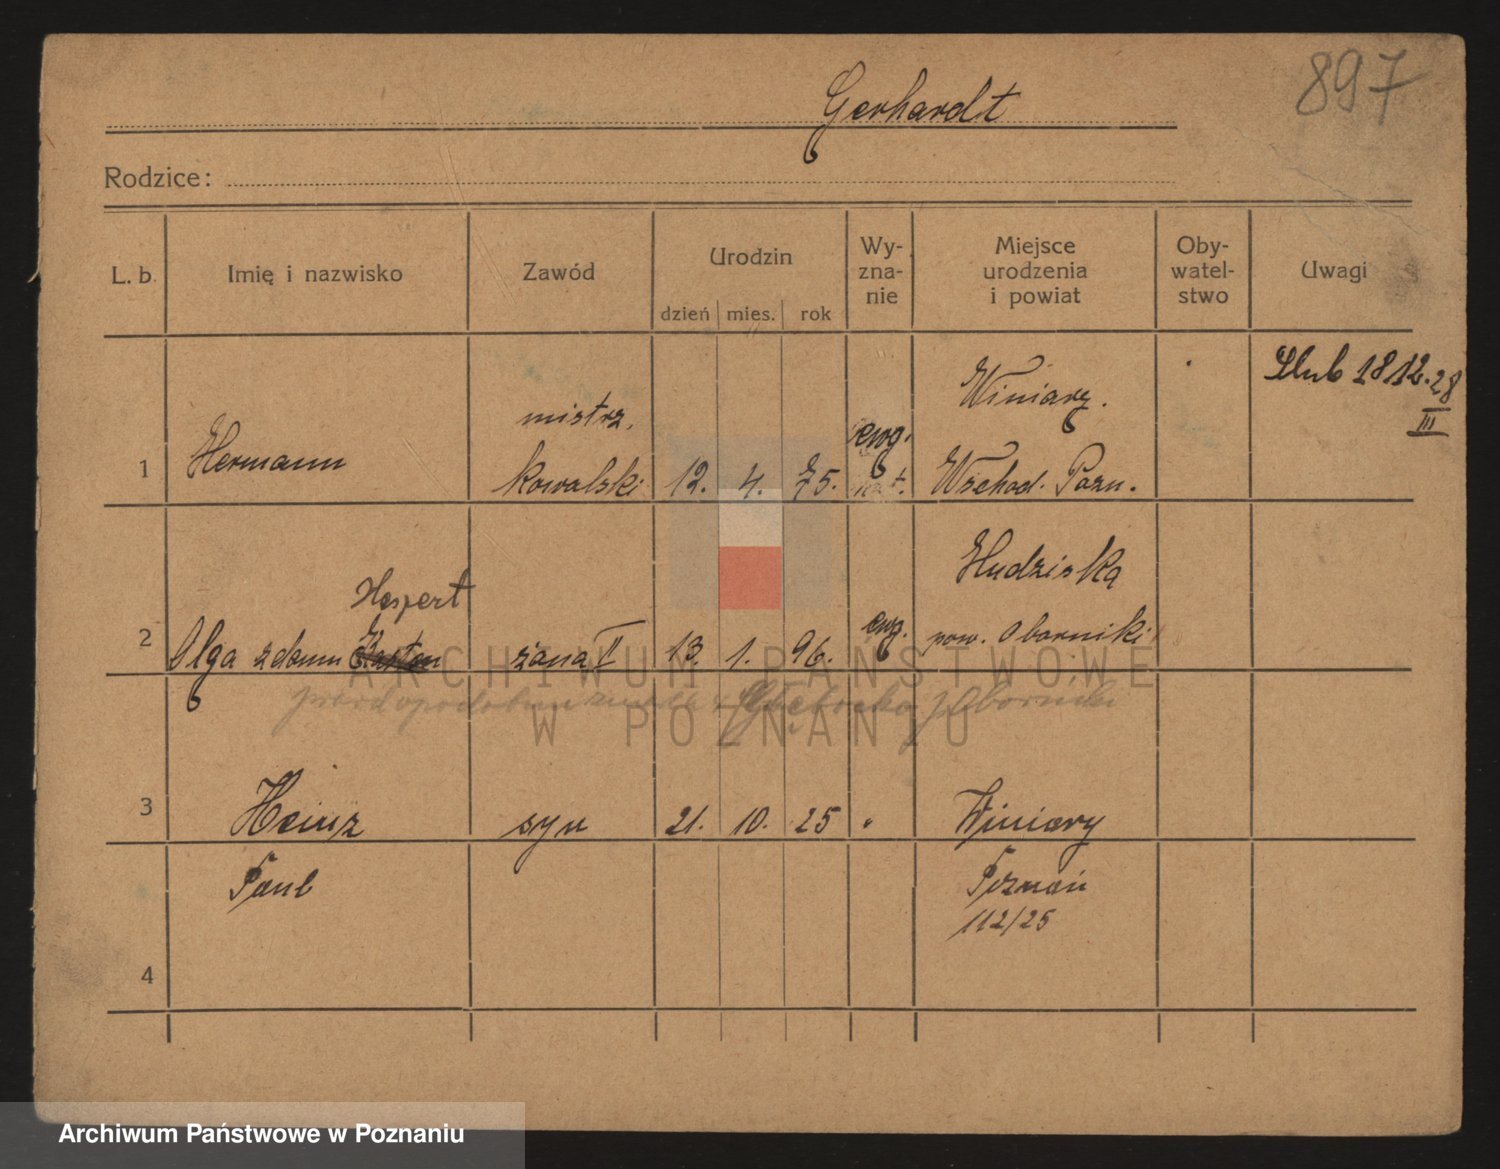 897
Gerhardt
Rodzice:
L. b. Imię i nazwisko Zawód Urodzin dzień mies. rok Wy-zna-nie Miejsce urodzenia i powiat Oby-watel-stwo Uwagi
Ślub 18 12. 28
III
Winiary.
mistrz.
ewg.
1 Hermann kowalski 12. 4. 75. Wschod. Pozn.
Hudziska
Hespert
2 Olga z domu żona II 13. 1. 96. ewg. pow. Oborniki
ARCHIWUM PAŃSTWOWE
prawdopodobnie
Oborniki
W POZNANIU
3 Heinz syn 21. 10. 25 " Winiary
Paul Poznań
112/25
4
Archiwum Państwowe w Poznaniu